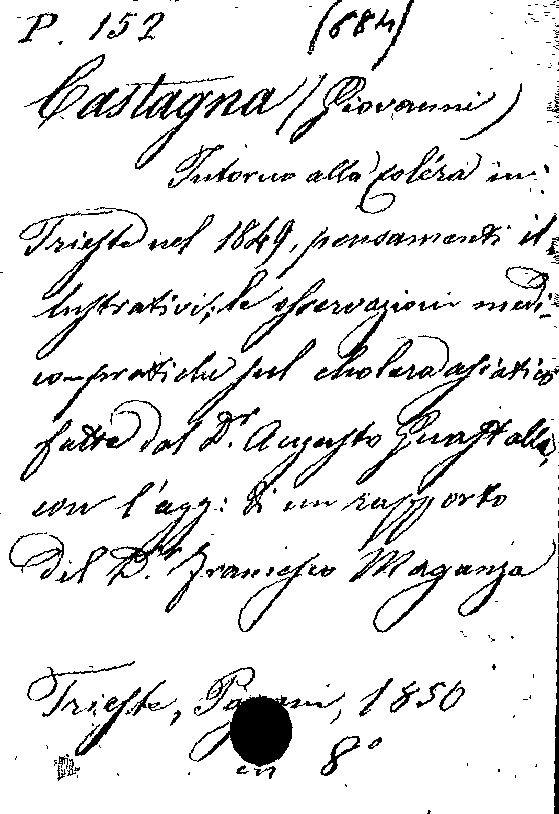 P. 152 (684)
Castagna (Giovanni)
Intorno alla coléra in
Trieste nel 1849, pensamenti il-
lustrativi, le osservazioni medi-
co-pratiche sul cholera asiatico
fatte dal Dr. Augusto Guastalla,
con l'agg: di un rapporto
del Dr. Francesco Maganza
Trieste, Pagani, 1850
in 8°